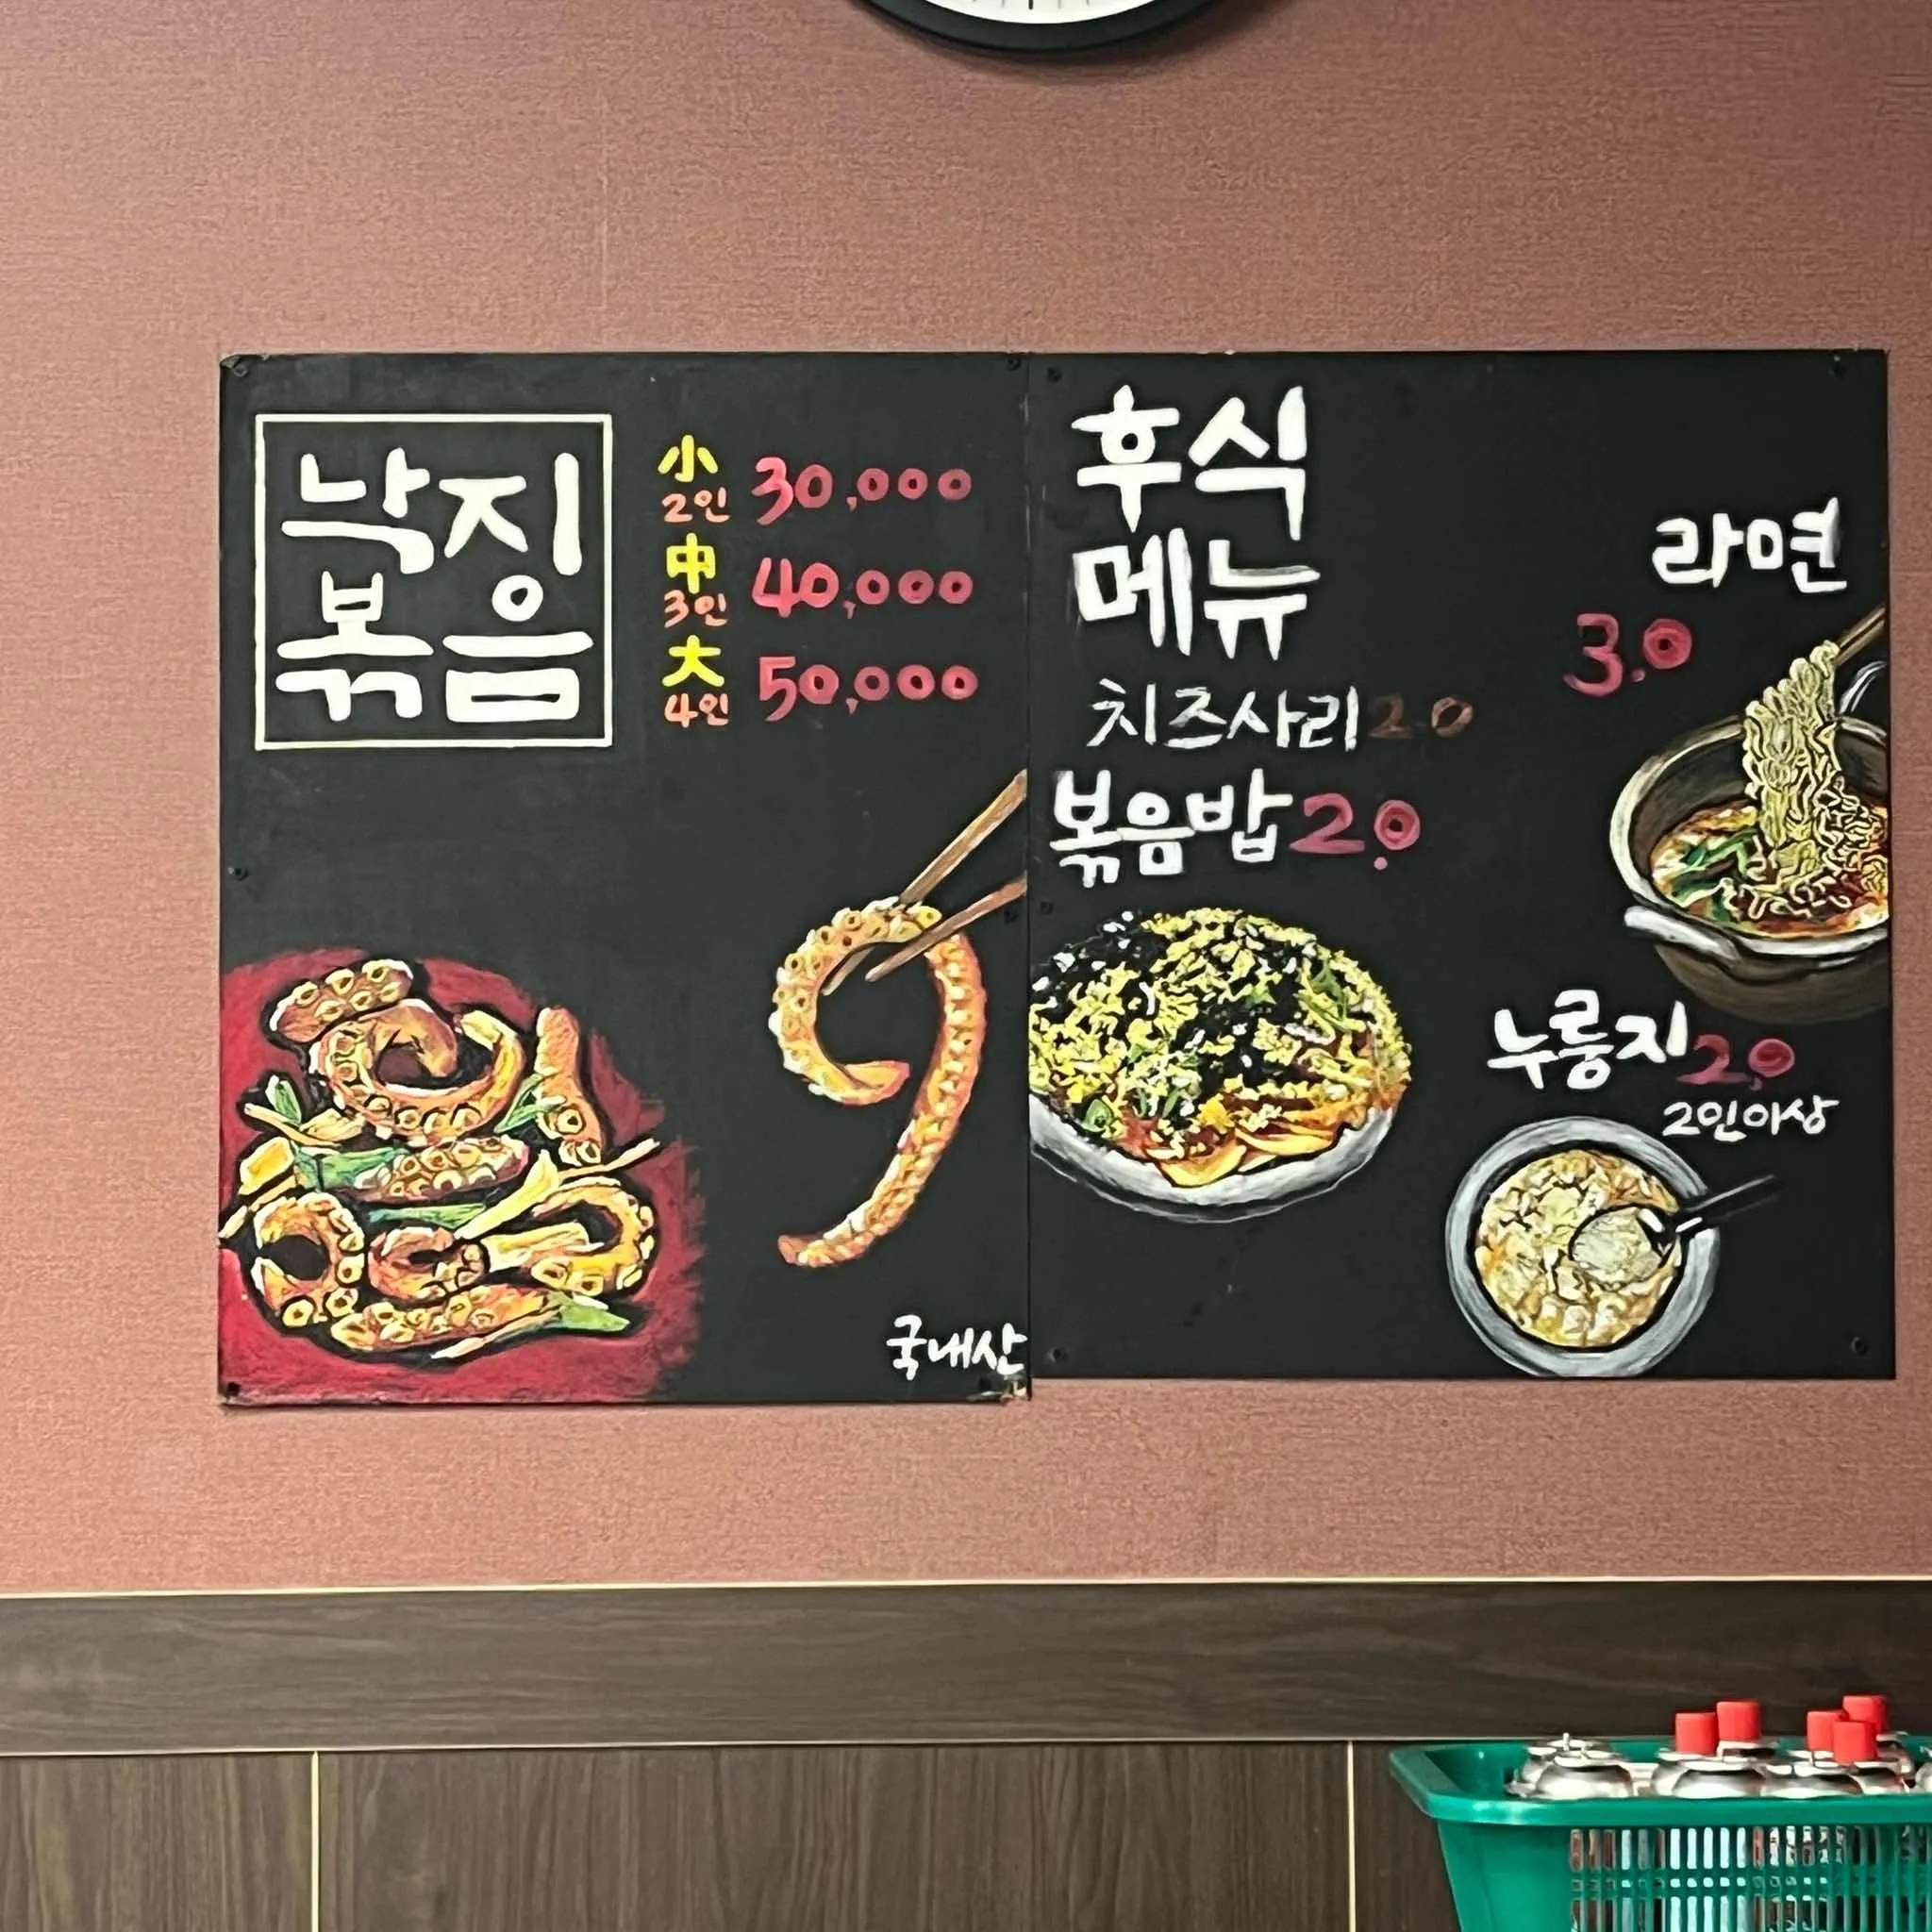 낙징
볶음
小 30,000
2인
中 40,000
3인
大 50,000
4인
국내산
후식
메뉴
치즈사리 2.0
볶음밥 2.0
라면
3.0
누룽지 2.0
2인이상